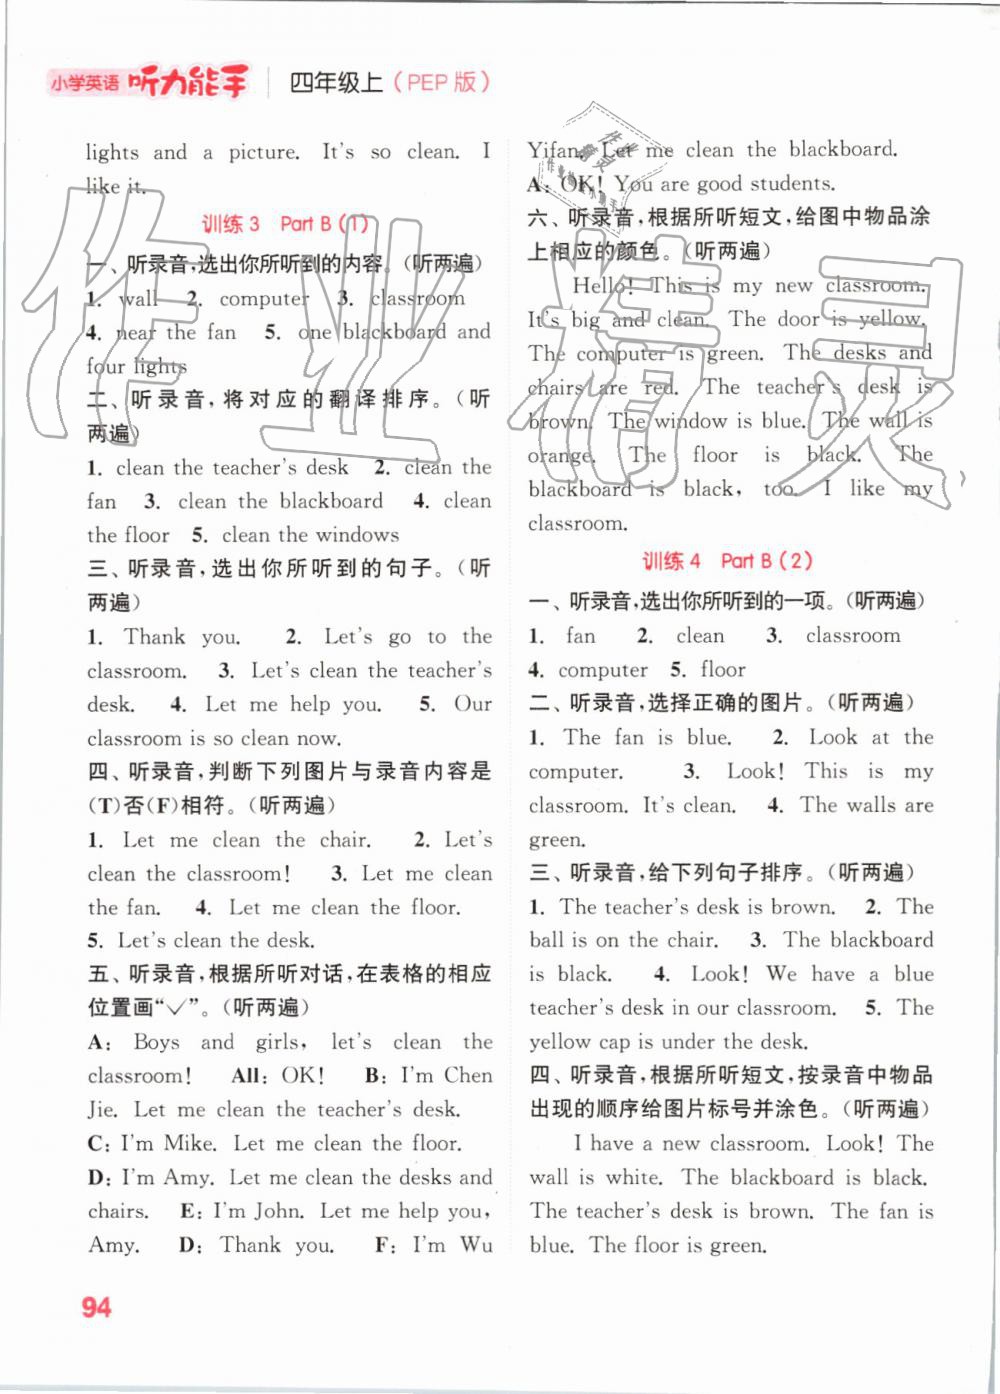 小学英语 听力能手 四年级上（PEP 版）
lights and a picture. It's so clean. I
like it.
训练 3 Part B (1)
一、听录音，选出你所听到的内容。（听两遍）
1. wall 2. computer 3. classroom
4. near the fan 5. one blackboard and
four lights
二、听录音，将对应的翻译排序。（听
两遍）
1. clean the teacher's desk 2. clean the
fan 3. clean the blackboard 4. clean
the floor 5. clean the windows
三、听录音，选出你所听到的句子。（听
两遍）
1. Thank you. 2. Let's go to the
classroom. 3. Let's clean the teacher's
desk. 4. Let me help you. 5. Our
classroom is so clean now.
四、听录音，判断下列图片与录音内容是
(T)否(F)相符。（听两遍）
1. Let me clean the chair. 2. Let's
clean the classroom! 3. Let me clean
the fan. 4. Let me clean the floor.
5. Let's clean the desk.
五、听录音，根据所听对话，在表格的相应
位置画“✓”。（听两遍）
A: Boys and girls, let's clean the
classroom! All: OK! B: I'm Chen
Jie. Let me clean the teacher's desk.
C: I'm Mike. Let me clean the floor.
D: I'm Amy. Let me clean the desks and
chairs. E: I'm John. Let me help you,
Amy. D: Thank you. F: I'm Wu
Yifan. Let me clean the blackboard.
A: OK! You are good students.
六、听录音，根据所听短文，给图中物品涂
上相应的颜色。（听两遍）
Hello! This is my new classroom.
It's big and clean. The door is yellow.
The computer is green. The desks and
chairs are red. The teacher's desk is
brown. The window is blue. The wall is
orange. The floor is black. The
blackboard is black, too. I like my
classroom.
训练 4 Part B (2)
一、听录音，选出你所听到的一项。（听两遍）
1. fan 2. clean 3. classroom
4. computer 5. floor
二、听录音，选择正确的图片。（听两遍）
1. The fan is blue. 2. Look at the
computer. 3. Look! This is my
classroom. It's clean. 4. The walls are
green.
三、听录音，给下列句子排序。（听两遍）
1. The teacher's desk is brown. 2. The
ball is on the chair. 3. The blackboard
is black. 4. Look! We have a blue
teacher's desk in our classroom. 5. The
yellow cap is under the desk.
四、听录音，根据所听短文，按录音中物品
出现的顺序给图片标号并涂色。（听两遍）
I have a new classroom. Look! The
wall is white. The blackboard is black.
The teacher's desk is brown. The fan is
blue. The floor is green.
94
作业精灵